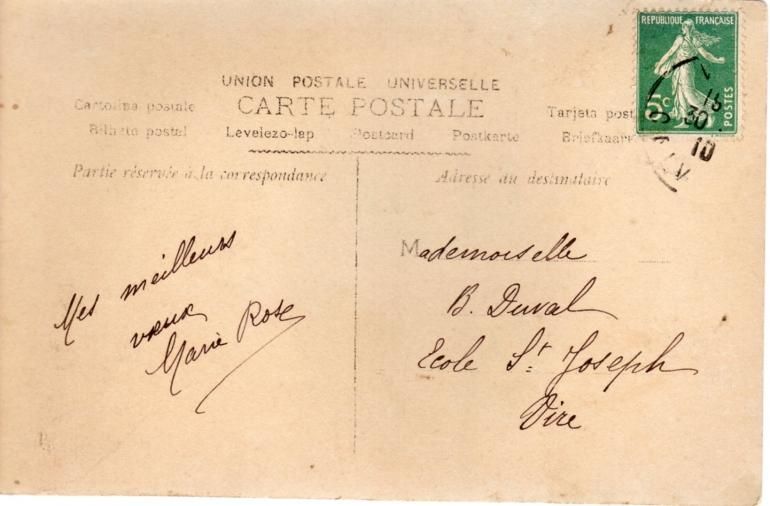 RÉPUBLIQUE FRANÇAISE
5c
POSTES
18
30
10
UNION POSTALE UNIVERSELLE
Cartolina postale CARTE POSTALE Tarjeta
Bilhete postal Levelezo-lap Postcard Postkarte Briefkaart
Partie réservée à la correspondance
Adresse au destinataire
Mes meilleurs
vœux
Marie Rose
Mademoiselle
B. Duval
Ecole St Joseph
Vire